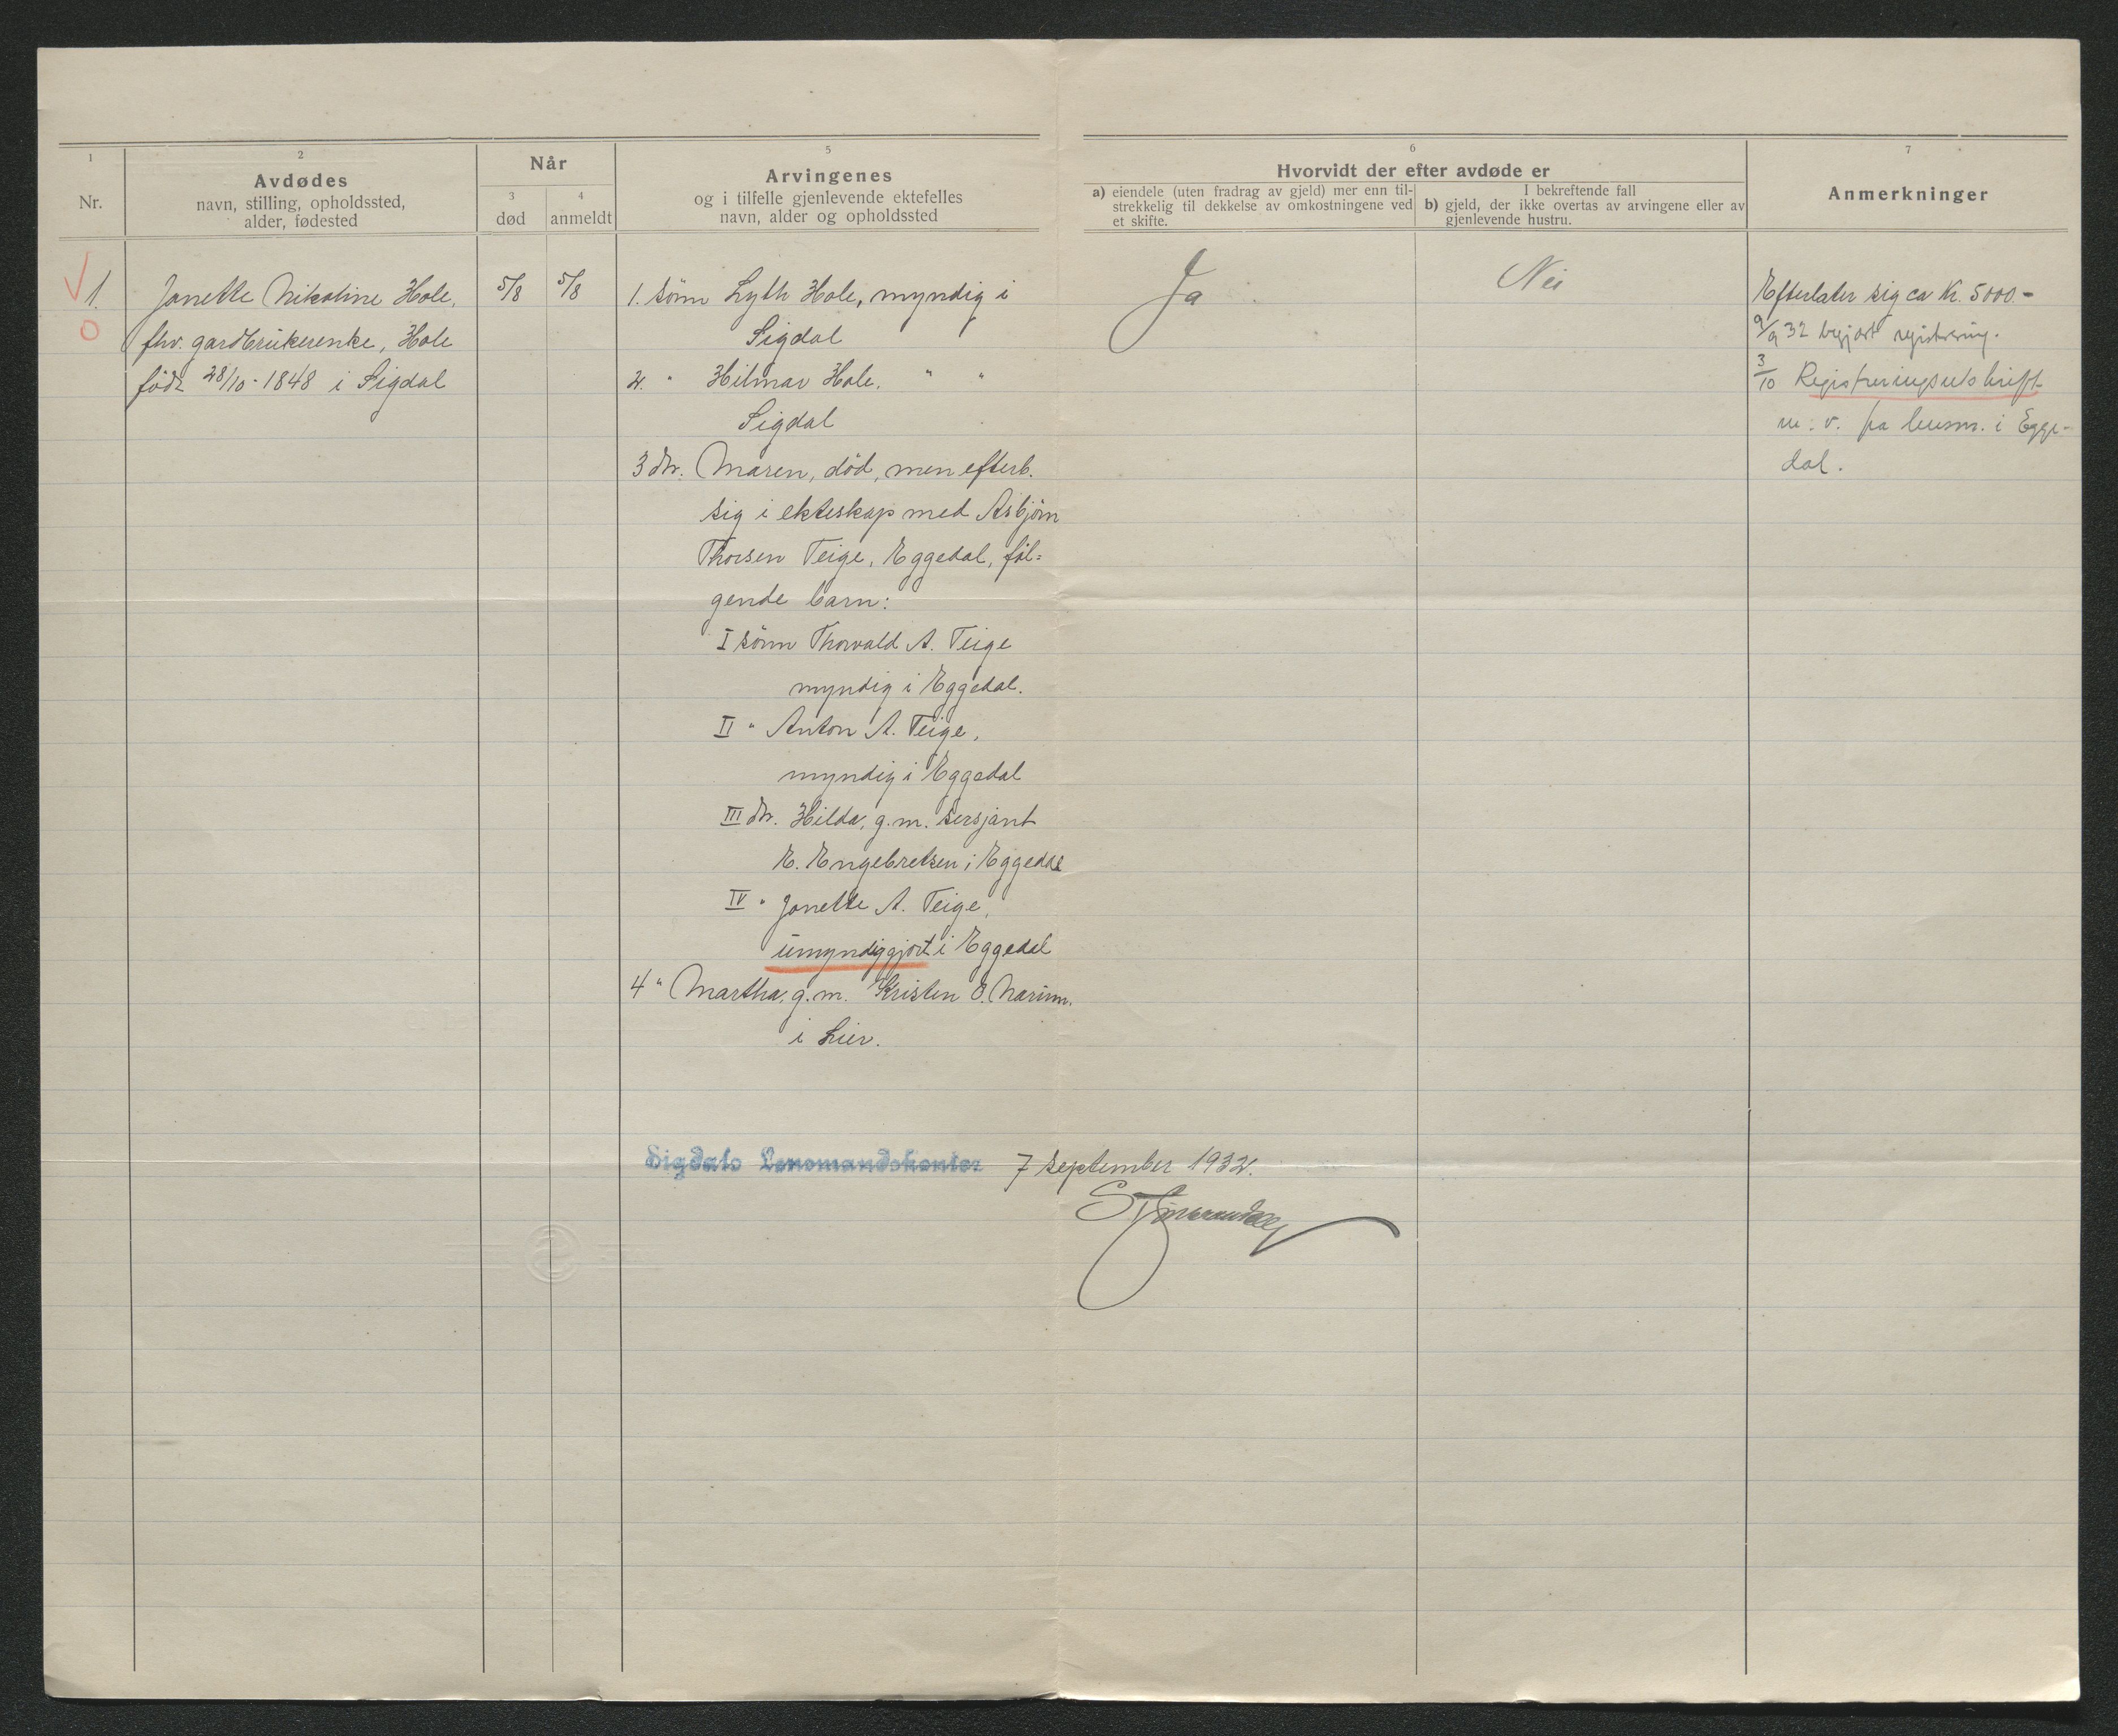 1
2
Når
5
6
7
Nr.
Avdødes
navn, stilling, opholdssted,
alder, fødested
3
død
4
anmeldt
Arvingenes
og i tilfelle gjenlevende ektefelles
navn, alder og opholdssted
Hvorvidt der efter avdøde er
a) eiendele (uten fradrag av gjeld) mer enn til-
strekkelig til dekkelse av omkostningene ved
et skifte.
I bekreftende fall
b) gjeld, der ikke overtas av arvingene eller av
gjenlevende hustru.
Anmerkninger
1.
0
Janette Nikoline Hole,
fhv. gardbrukerenke, Hole
född 28/10-1848 i Sigdal
5/8
5/8
1. sönn Lyth Hole, myndig i
Sigdal
2. " Hilmar Hole, " "
Sigdal
3 dtr. Maren, död, men efterl.
sig i ekteskap med Asbjörn
Thorsen Teige, Eggedal, föl-
gende barn:
I sönn Thorvald A. Teige
myndig i Eggedal.
II " Anton A. Teige,
myndig i Eggedal
III dtr. Hilda, g.m. sersjant
E. Engebretsen i Eggedal
IV " Janette A. Teige,
umyndiggjort i Eggedal
4 " Martha, g.m. Kristen O. Narum.
i Lier.
Ja
Nei
Efterlater sig ca Kr. 5000.-
9/9 32 begjært registrering.
3/10 Registreringsutskrift
m. v. fra lensm. i Egge-
dal.
Sigdals Lensmandskontor 7 september 1932.